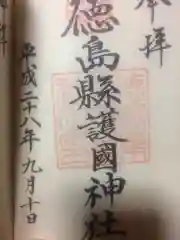 奉拝
徳島縣護國神社
平成二十八年九月十日